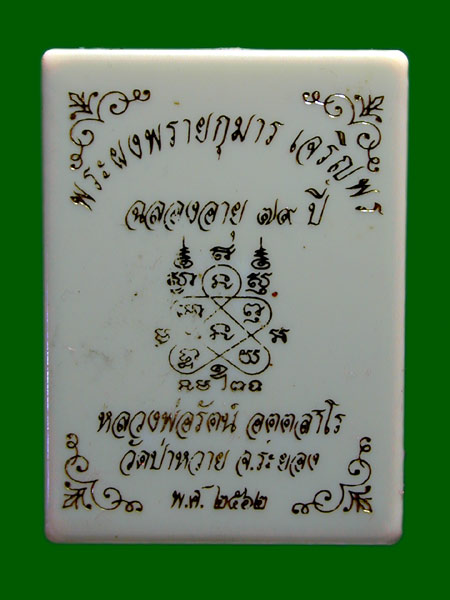 พระผงพรายกุมาร เจริญพร
ฉลองอายุ ๗๙ ปี
หลวงพ่อรัตน์ อตตสาโร
วัดป่าหวาย จ.ระยอง
พ.ศ. ๒๕๖๒